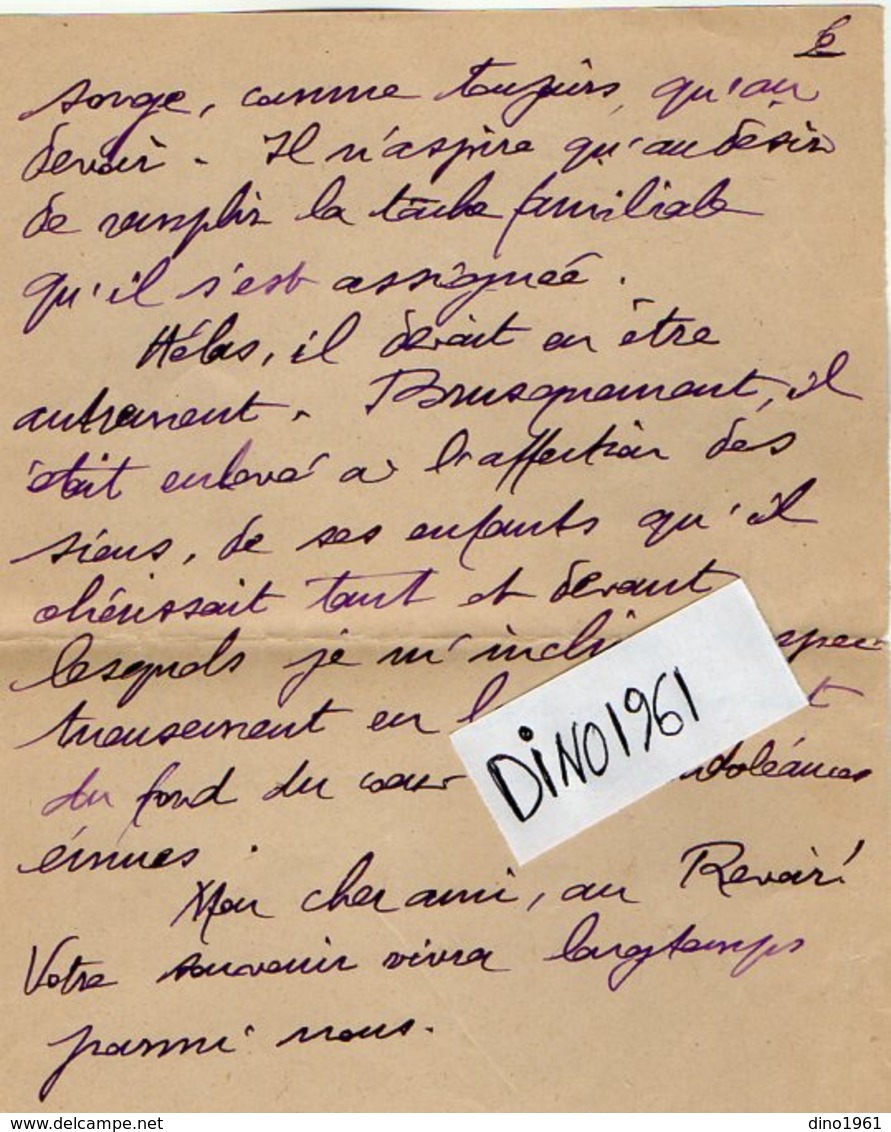 6
songe, comme toujours, qu'au
devoir. Il n'aspire qu'au désir
de remplir la tâche familiale
qu'il s'est assignée.
Hélas, il devait en être
autrement. Brusquement, il
était enlevé à l'affection des
siens, de ses enfants qu'il
chérissait tant et devant
lesquels je m'incli spec
tueusement en l t
du fond du cœur ndoléances
émues.
Mon cher ami, au Revoir!
Votre souvenir vivra longtemps
parmi nous.
DINO1961
www.delcampe.net
dino1961